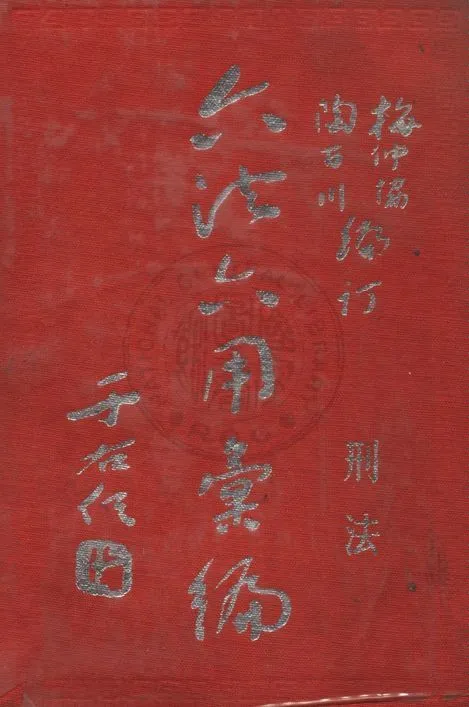 梅仲協
陶百川
編訂
刑法
六法六用彙編
于右任